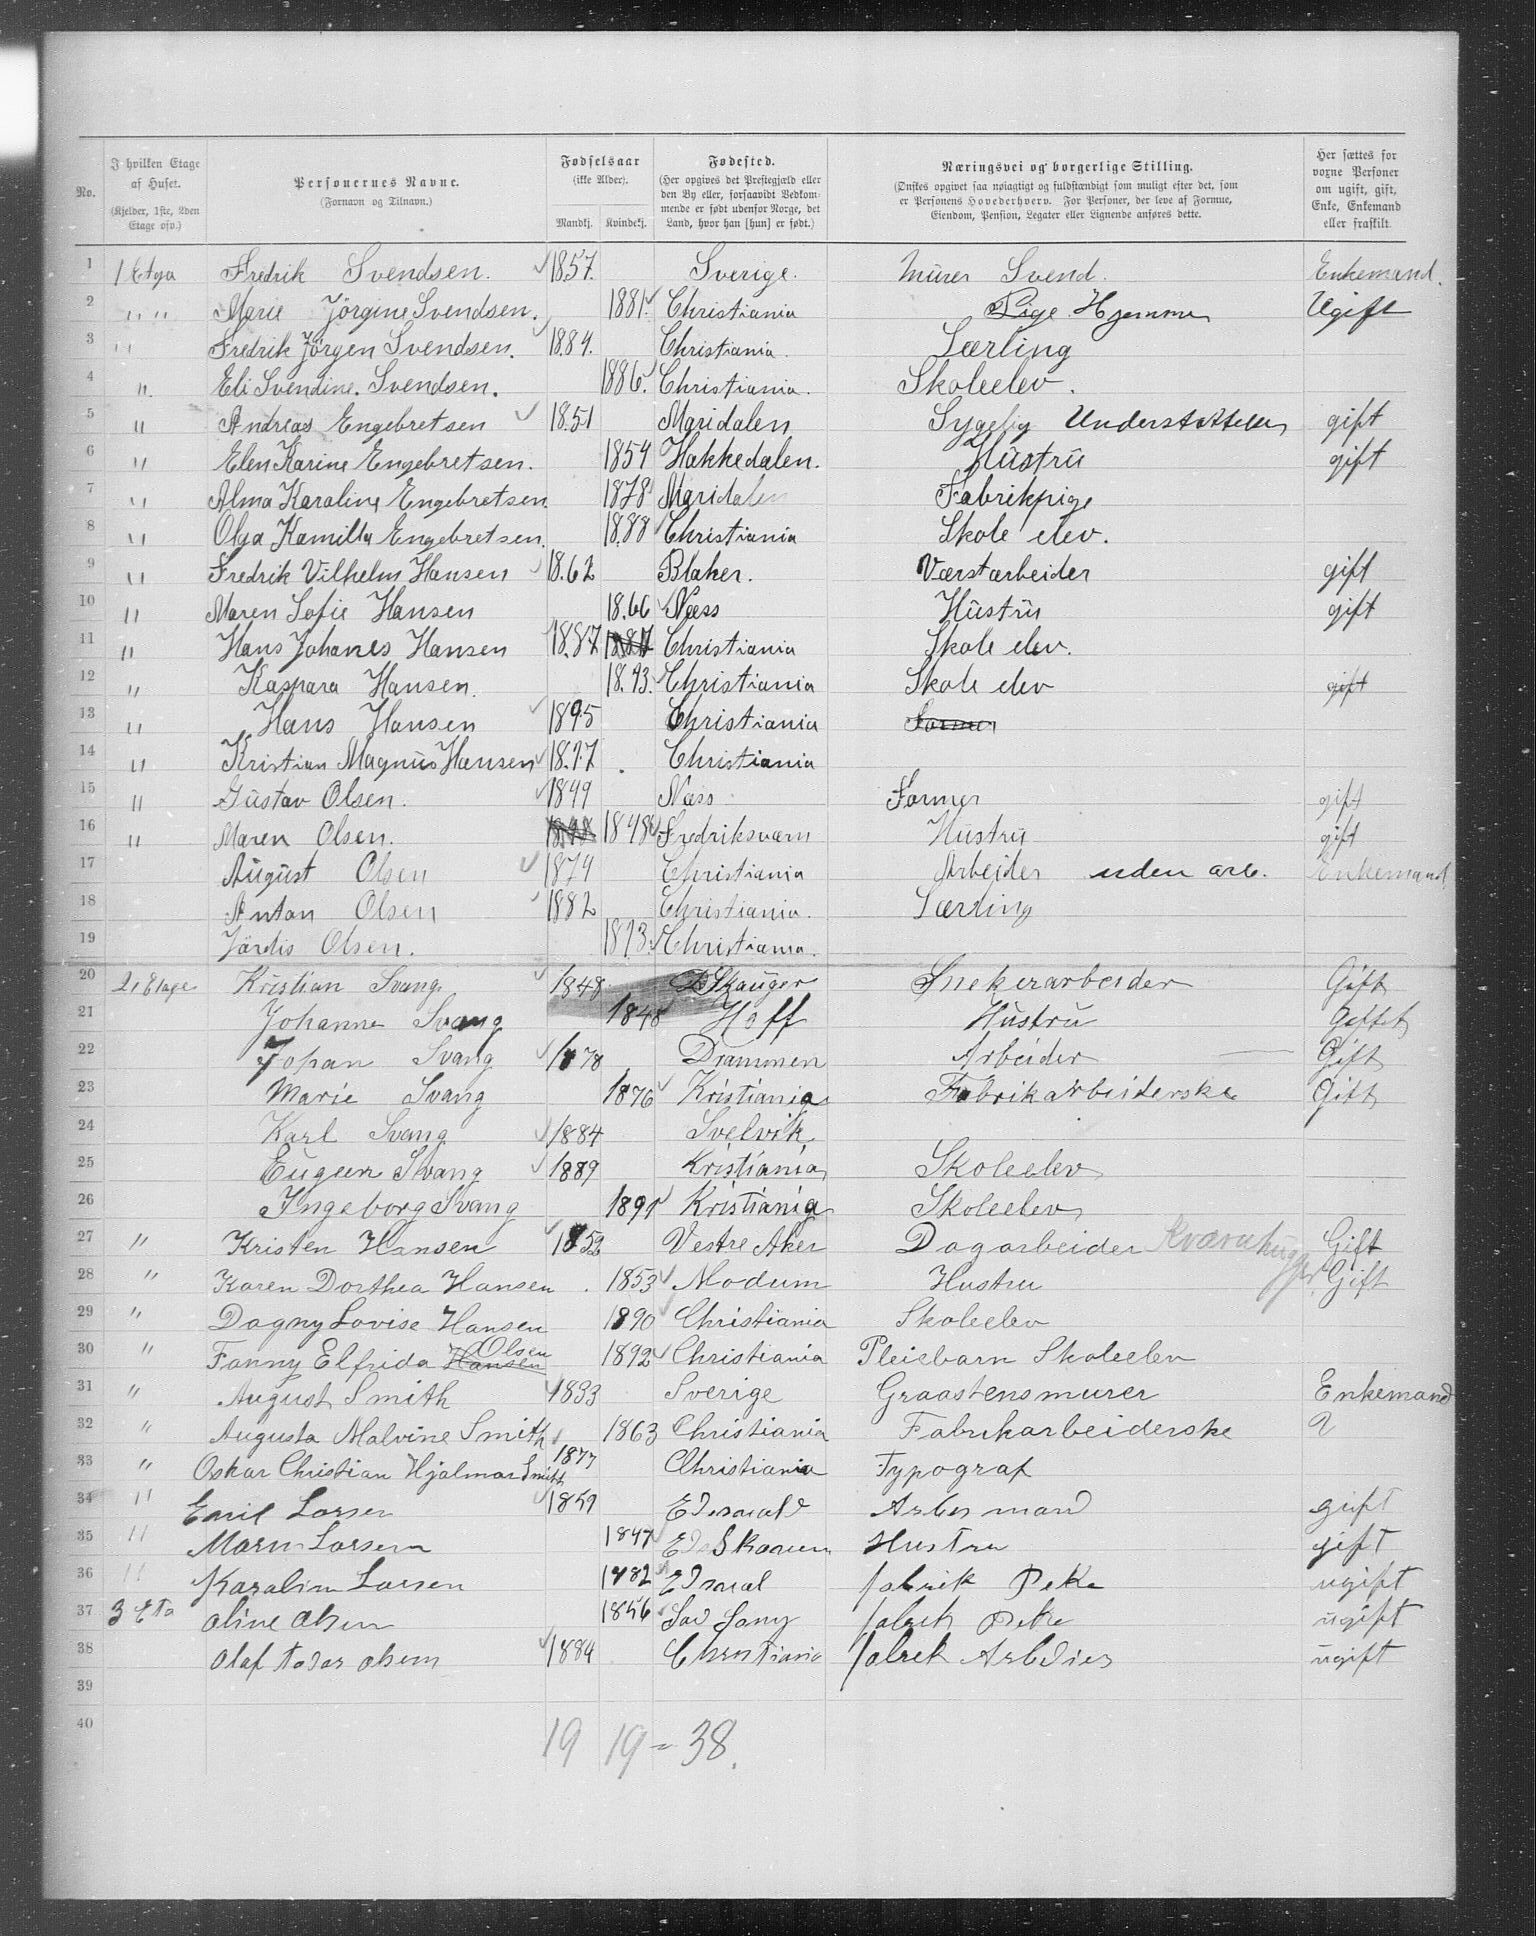 No. | I hvilken Etage af Huset. (Kjelder, 1ste, 2den Etage osv.) | Personernes Navne. (Fornavn og Tilnavn.) | Fødselsaar (ikke Alder). Mandkj. Kvindekj. | Fødested. (Her opgives det Prestegjæld eller den By eller, forsaavidt Vedkommende er født udenfor Norge, det Land, hvor han [hun] er født.) | Næringsvei og borgerlige Stilling. (Ønskes opgivet saa nøiagtigt og fuldstændigt som muligt efter det, som er Personens Hovederhverv. For Personer, der leve af Formue, Eiendom, Pension, Legater eller Lignende anføres dette. | Her sættes for voxne Personer om ugift, gift, Enke, Enkemand eller fraskilt.
1 1 Etga Fredrik Svendsen. 1857. Sverige. Murer Svend. Enkemand.
2 " " Marie Jørgine Svendsen. 1881. Christiania Pige Hjemme Ugift
3 " Fredrik Jørgen Svendsen. 1884. Christiania. Lærling
4 " Eli Svendine. Svendsen. 1886. Christiania. Skoleelev.
5 " Andreas Engebretsen 1851 Maridalen Sygelig gift
6 " Elen Karine Engebretsen. 1854 Hakkedalen. Hustru gift
7 " Alma Karoline Engebretsen. 1878 Maridalen Fabrikpige
8 " Olga Kamilla Engebretsen. 1888 Christiania Skole elev.
9 " Fredrik Vilhelm Hansen 1862 Blaker. Værstarbeider gift
10 " Maren Sofie Hansen 1866 Næss Hustru gift
11 " Hans Johanes Hansen 1887 Christiania Skole elev.
12 " Kaspara Hansen. 1893. Christiania Skole elev gift
13 " Hans Hansen 1895 Christiania Former
14 " Kristian Magnus Hansen 1897 Christiania
15 " Gustav Olsen. 1849 Næss Former gift
16 " Maren Olsen. 1848 Fredriksværn Hustru gift
17 August Olsen 1874 Christiania Arbeider uden arb. Enkemand
18 Anton Olsen 1882 Christiania. Lærling
19 Jørdis Olsen. 1893. Christiania.
20 2. Etage Kristian Svang 1848 Skauger Snekerarbeider Gift
21 Johanne Svang 1848 Hoff Hustru Giftet
22 Johan Svang 1878 Drammen Arbeider Gift
23 Marie Svang 1876 Kristiania Fabrikarbeiderske Gift
24 Karl Svang 1884 Svelvik
25 Eugen Svang 1889 Kristiania Skoleelev
26 Ingeborg Svang 1891 Kristiania Skoleelev
27 " Kristen Hansen 1852 Vestre Aker Dagarbeider Kværnhugger Gift
28 " Karen Dorthea Hansen 1853 Modum Hustru Gift
29 " Dagny Lovise Hansen 1890 Christiania Skoleelev
30 " Fanny Elfrida Hansen Olsen 1892 Christiania Pleiebarn Skoleelev
31 " August Smith 1833 Sverige Graastensmurer Enkemand
32 " Augusta Malvine Smith 1863 Christiania Fabrikarbeiderske
33 " Oskar Christian Hjalmar Smith 1877 Christiania Typograf
34 " Emil Larsen gift
35 " Larsen 1847 Hustru gift
36 " Karolin Larsen 1882 fabrik ugift
37 3 Eta Oline Olsen 1856 ugift
38 Olaf olsen 1884 Christiania ugift
39
40 19 19 = 38.